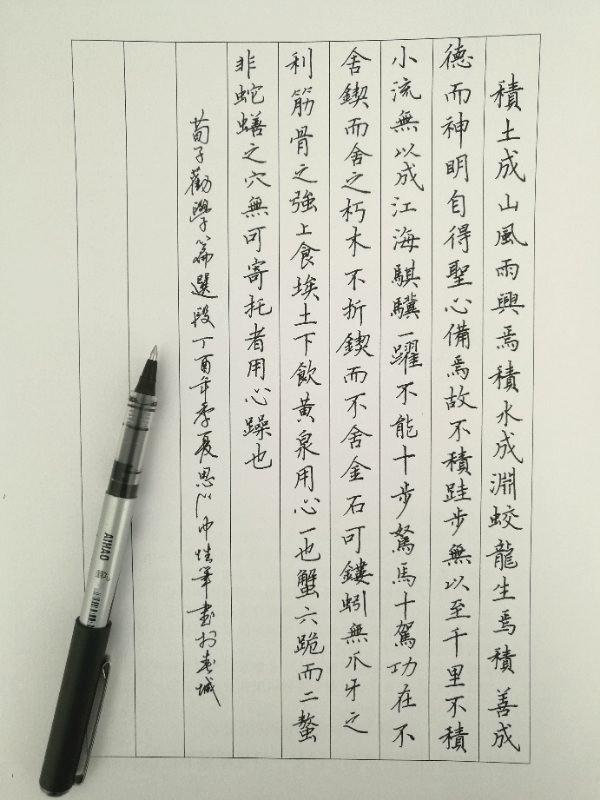 積土成山風雨興焉積水成淵蛟龍生焉積善成
德而神明自得聖心備焉故不積跬步無以至千里不積
小流無以成江海騏驥一躍不能十步駑馬十駕功在不
舍鍥而舍之朽木不折鍥而不舍金石可鏤蚓無爪牙之
利筋骨之強上食埃土下飲黃泉用心一也蟹六跪而二螯
非蛇蟮之穴無可寄托者用心躁也
荀子勸學篇選段丁酉年季夏思 中性筆書於春城
AIHAO